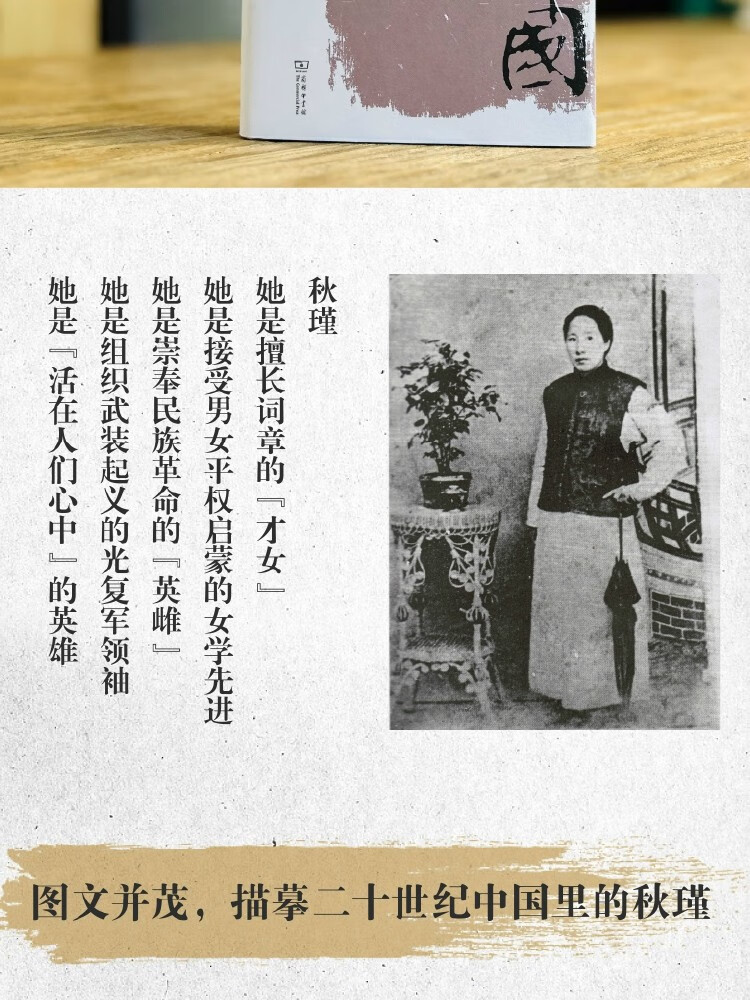 國
商務印書館
The Commercial Press
秋瑾
她是擅长词章的『才女』
她是接受男女平权启蒙的女学先进
她是崇奉民族革命的『英雌』
她是组织武装起义的光复军领袖
她是『活在人们心中』的英雄
图文并茂，描摹二十世纪中国里的秋瑾